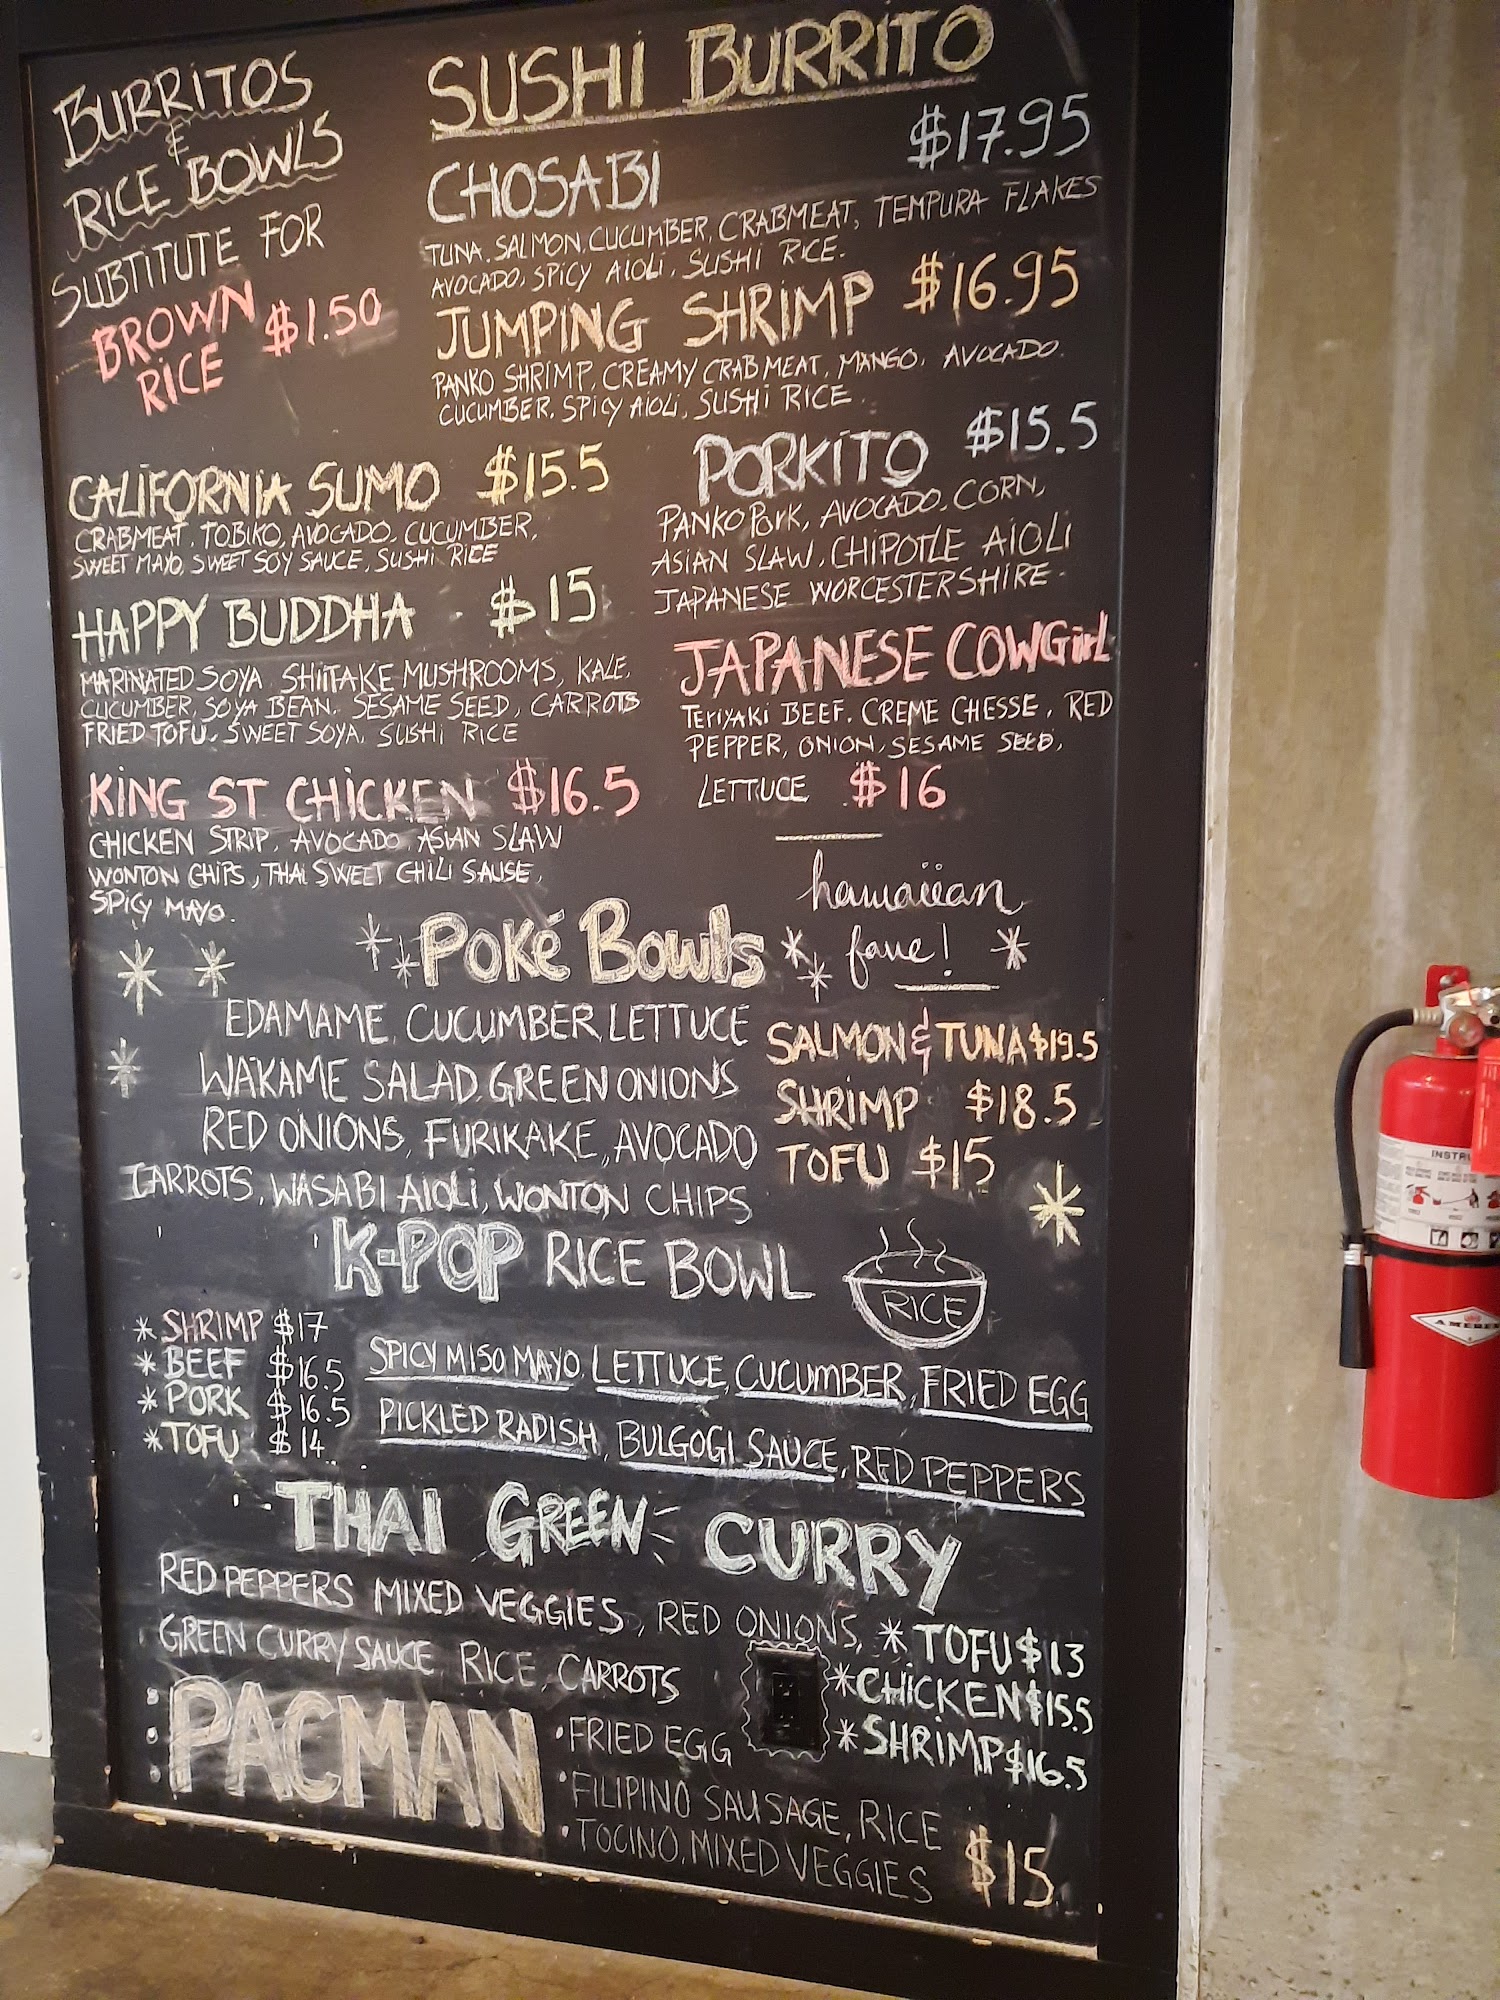 BURRITOS
&
RICE BOWLS
SUBTITUTE FOR
BROWN
RICE
$1.50
SUSHI BURRITO
CHOSABI $17.95
TUNA. SALMON, CUCUMBER, CRABMEAT, TEMPURA FLAKES
AVOCADO, SPICY AIOLI, SUSHI RICE.
JUMPING SHRIMP $16.95
PANKO SHRIMP, CREAMY CRABMEAT, MANGO, AVOCADO.
CUCUMBER. SPICY AIOLI, SUSHI RICE.
CALIFORNIA SUMO $15.5
CRABMEAT, TOBIKO, AVOCADO, CUCUMBER,
SWEET MAYO, SWEET SOY SAUCE, SUSHI RICE
HAPPY BUDDHA $15
MARINATED SOYA SHIITAKE MUSHROOMS, KALE,
CUCUMBER, SOYA BEAN. SESAME SEED, CARROTS
FRIED TOFU. SWEET SOYA, SUSHI RICE
KING ST CHICKEN $16.5
CHICKEN STRIP, AVOCADO, ASIAN SLAW
WONTON CHIPS, THAI SWEET CHILI SAUSE,
SPICY MAYO.
PORKITO $15.5
PANKO PORK, AVOCADO. CORN,
ASIAN SLAW, CHIPOTLE AIOLI
JAPANESE WORCESTERSHIRE.
JAPANESE COWGIRL
TERIYAKI BEEF. CREME CHESSE, RED
PEPPER, ONION, SESAME SEED,
LETTUCE $16
POKÉ BOWLS
hawaiian
fave!
EDAMAME, CUCUMBER, LETTUCE
WAKAME SALAD, GREEN ONIONS
RED ONIONS, FURIKAKE, AVOCADO
CARROTS, WASABI AIOLI, WONTON CHIPS
SALMON & TUNA $19.5
SHRIMP $18.5
TOFU $15
K-POP RICE BOWL
RICE
* SHRIMP $17
* BEEF $16.5
* PORK $16.5
* TOFU $14
SPICY MISO MAYO, LETTUCE, CUCUMBER, FRIED EGG
PICKLED RADISH, BULGOGI SAUCE, RED PEPPERS
THAI GREEN CURRY
RED PEPPERS MIXED VEGGIES, RED ONIONS,
GREEN CURRY SAUCE, RICE, CARROTS
* TOFU $13
* CHICKEN $15.5
* SHRIMP $16.5
PACMAN
• FRIED EGG
• FILIPINO SAUSAGE, RICE
• TOCINO, MIXED VEGGIES
$15
INSTR
AMERE